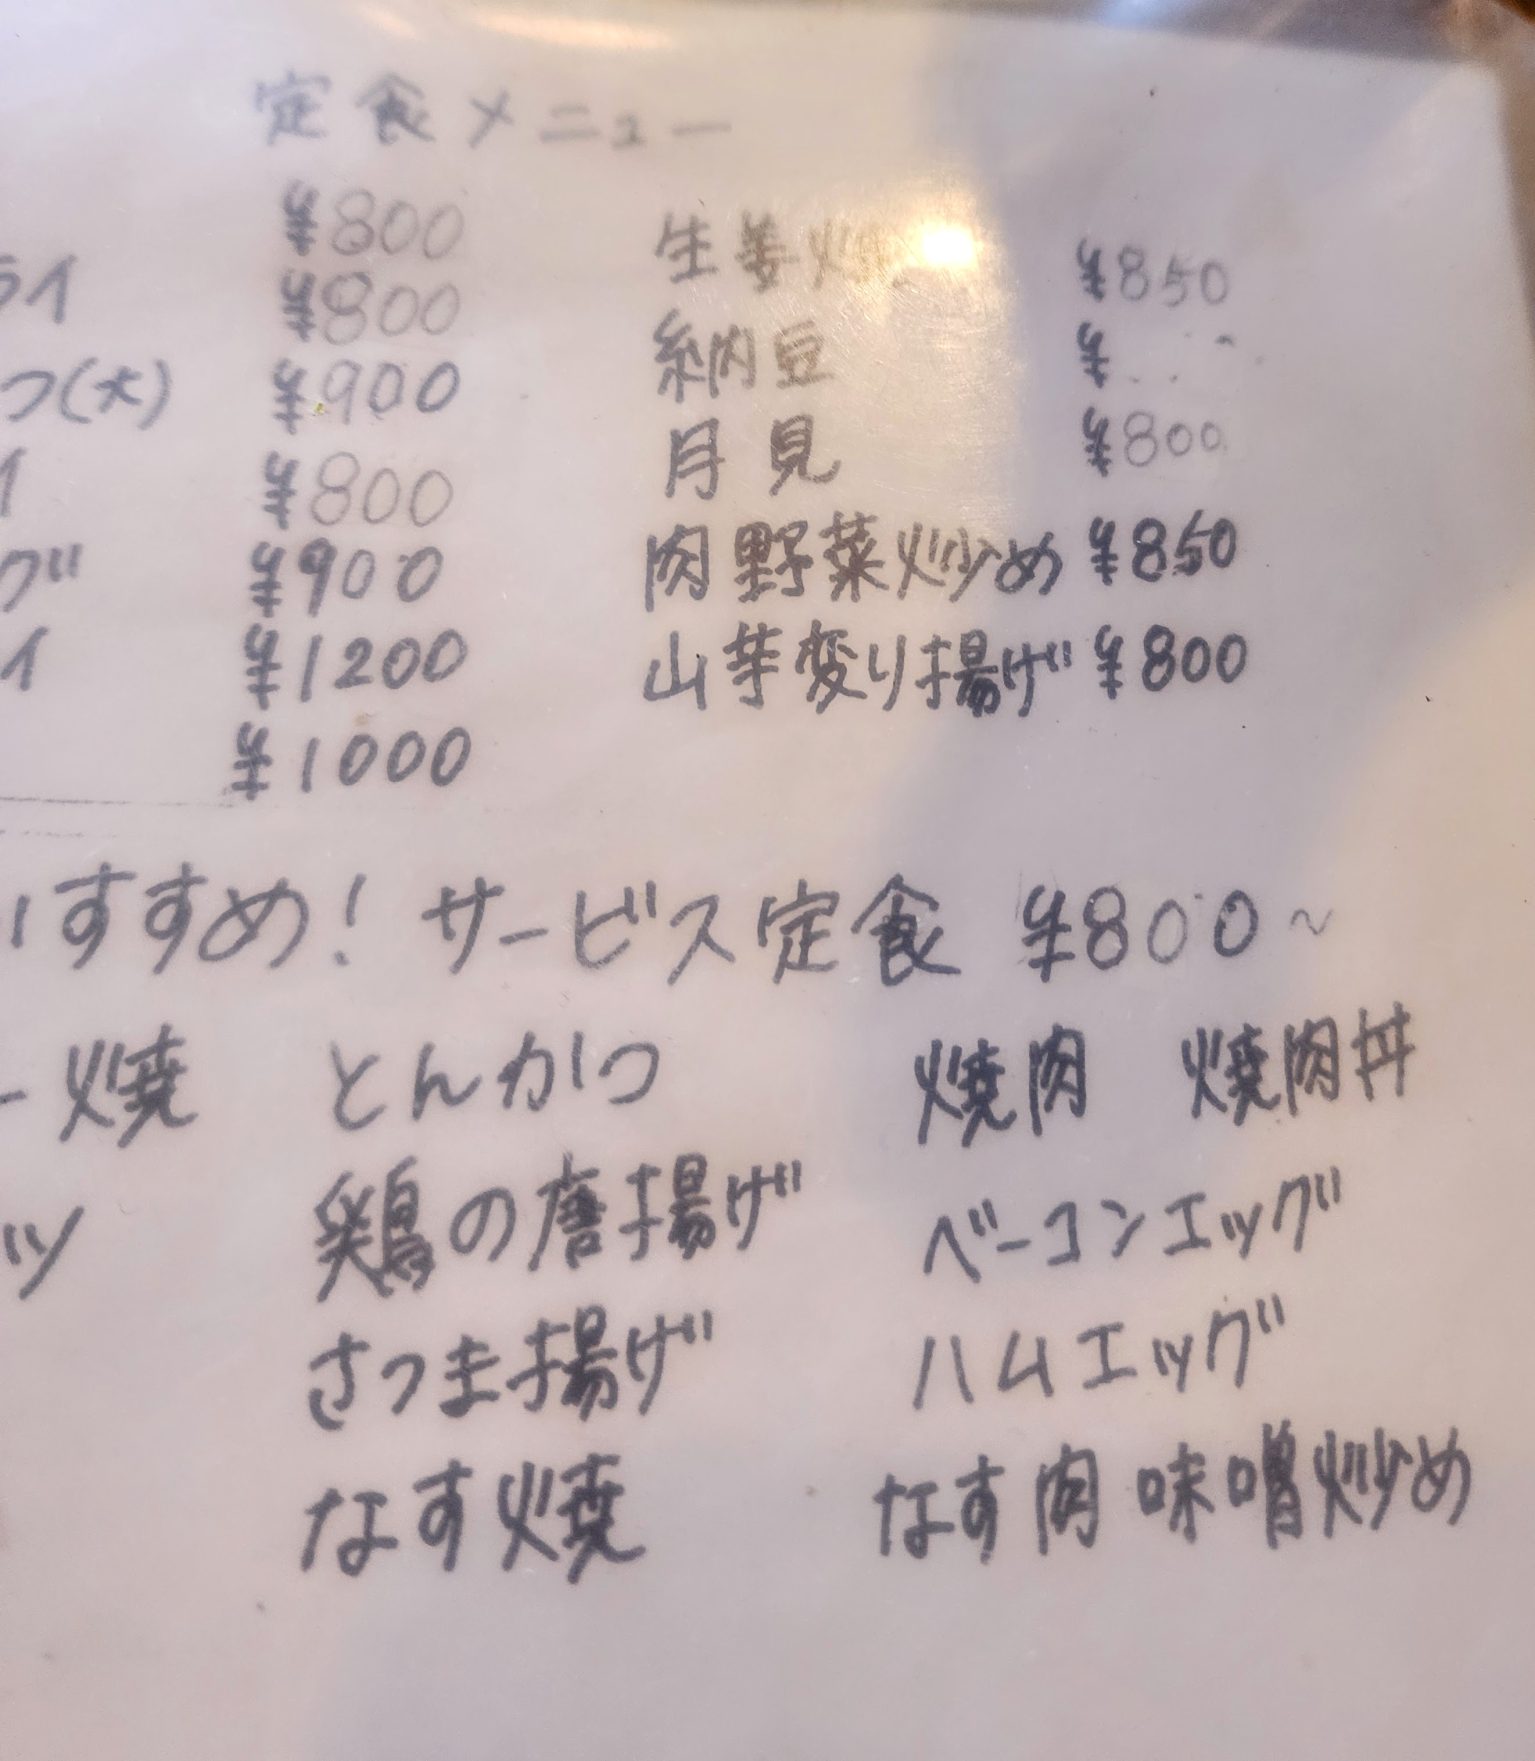 定食メニュー
¥800 生姜焼 ¥850
ライ ¥800 納豆 ¥
つ(大) ¥900 月見 ¥800
イ ¥800 肉野菜炒め ¥850
グ ¥900 山芋変り揚げ ¥800
イ ¥1200
¥1000
すすめ! サービス定食 ¥800~
ー焼 とんかつ 焼肉 焼肉丼
ツ 鶏の唐揚げ ベーコンエッグ
さつま揚げ ハムエッグ
なす焼 なす肉味噌炒め